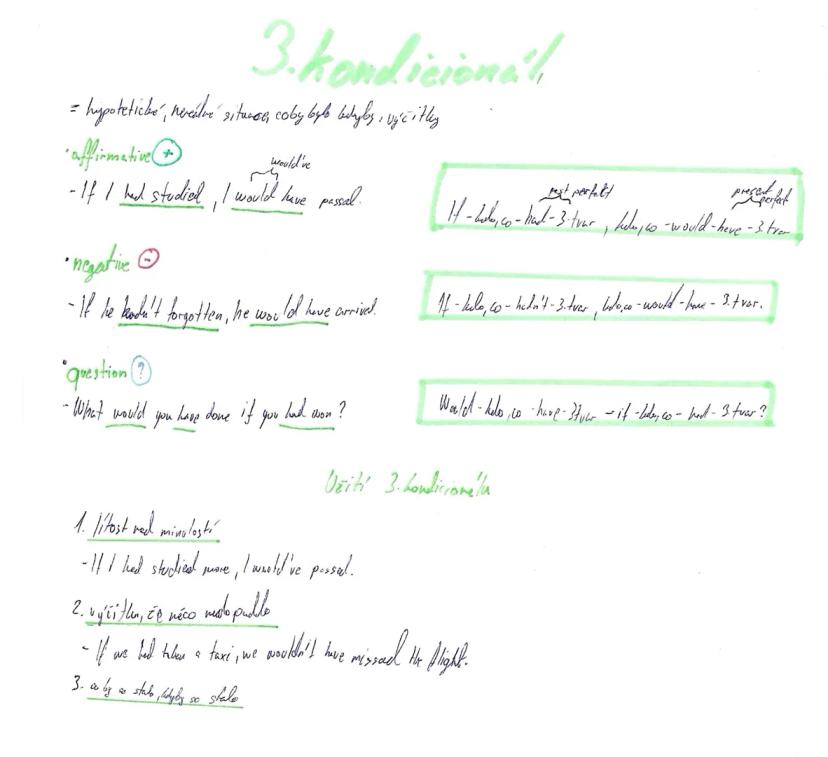 3. kondicionál
= hypotetické, nereálné situace, coby bylo kdyby, výčitky
• affirmative +
would've
- If I had studied, I would have passed.
past perfekt
present perfect
If - kdo, co - had - 3. tvar, kdo, co - would - have - 3. tvar
• negative -
- If he hadn't forgotten, he would have arrived.
If - kdo, co - hadn't - 3. tvar, kdo, co - would - have - 3. tvar.
• question ?
- What would you have done if you had won?
Would - kdo, co - have - 3. tvar - if - kdo, co - had - 3. tvar?
Užití 3. kondicionálu
1. lítost nad minulostí
- If I had studied more, I would've passed.
2. výčitka, že něco nedopadlo
- If we had taken a taxi, we wouldn't have missed the flight.
3. co by se stalo, kdyby se stalo